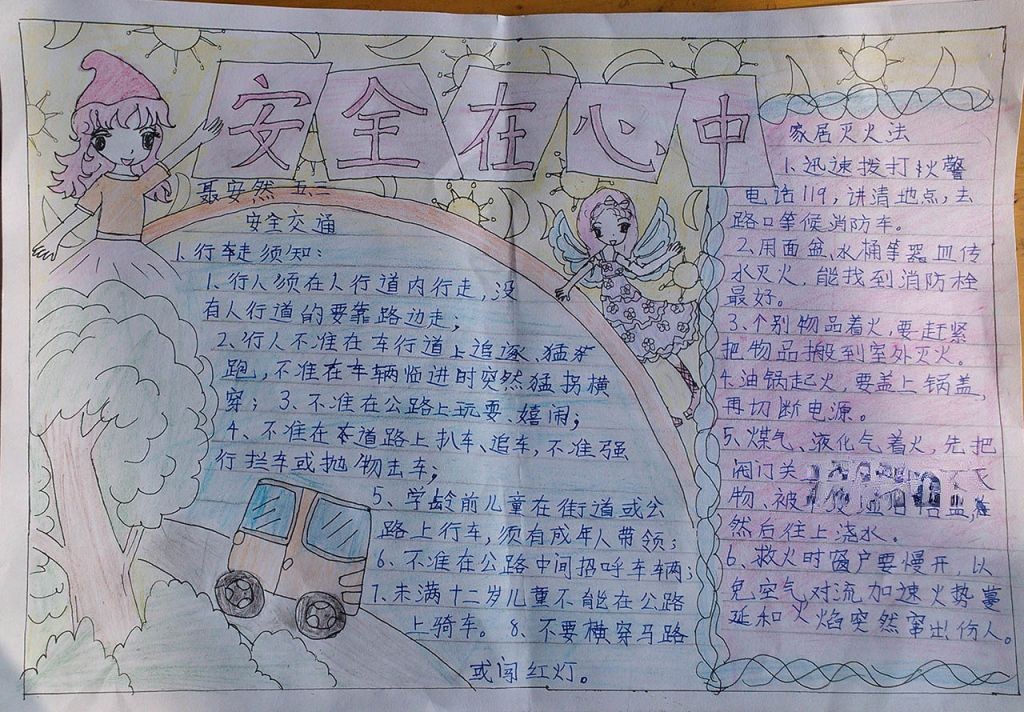 安全在心中
聂安然 五、二
安全交通
1.行走须知:
1、行人须在人行道内行走,没
有人行道的要靠路边走;
2、行人不准在车行道上追逐、猛
跑,不准在车辆临进时突然猛拐横
穿;3、不准在公路上玩耍、嬉闹;
4、不准在道路上扒车、追车,不准强
行拦车或抛物击车;
5、学龄前儿童在街道或公
路上行车,须有成年人带领;
6、不准在公路中间招呼车车辆;
7、未满十二岁儿童不能在公路
上骑车。8、不要横穿马路
或闯红灯。
家居灭火法
1.迅速拨打火警
电话119,讲清地点,去
路口等候消防车。
2.用面盆、水桶等器皿传
水灭火,能找到消防栓
最好。
3、个别物品着火,要赶紧
把物品搬到室外灭火。
4.油锅起火,要盖上锅盖,
再切断电源。
5、煤气、液化气着火,先把
阀门关
物、被
然后往上浇水。
6、救火时窗户要慢开,以
免空气对流加速火势蔓
延和火焰突然窜出伤人。